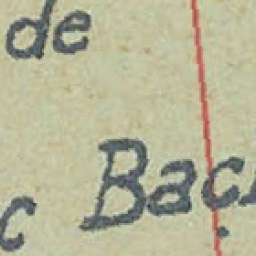 de
c Baç